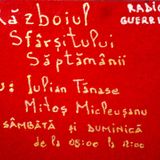 RADIO
GUERRI
Războiul
Sfârșitului
Săptămânii
: Iulian Tănase
Mitoș Micleușanu
SÂMBĂTĂ și DUMINICĂ
de la 08:00 la 12:00